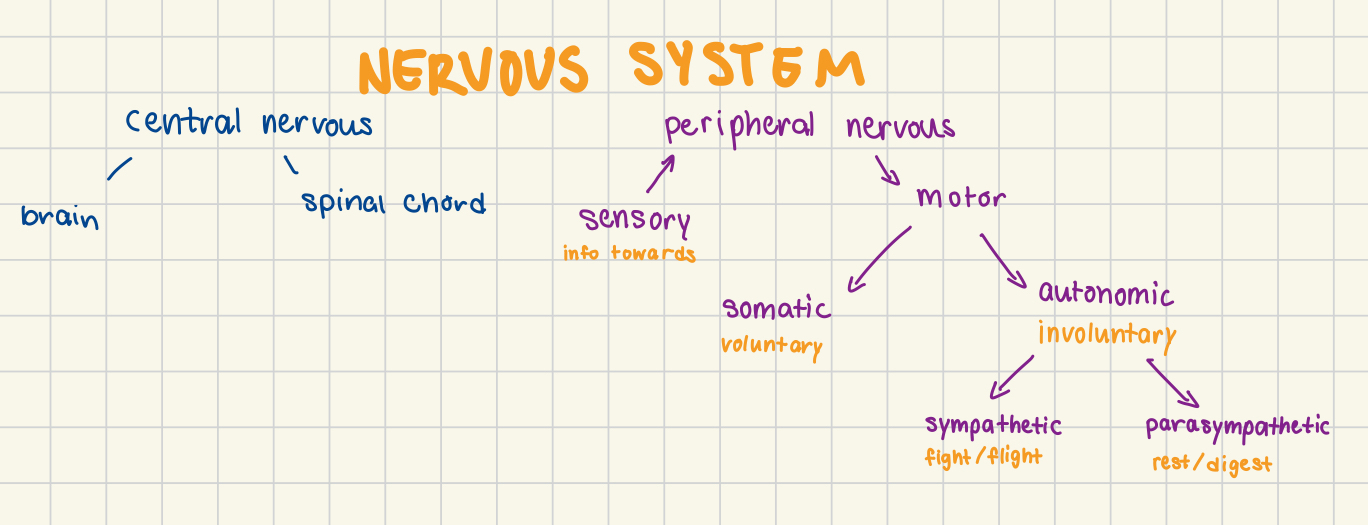 NERVOUS SYSTEM
central nervous
peripheral nervous
brain
spinal chord
sensory
info towards
motor
somatic
voluntary
autonomic
involuntary
sympathetic
fight/flight
parasympathetic
rest/digest